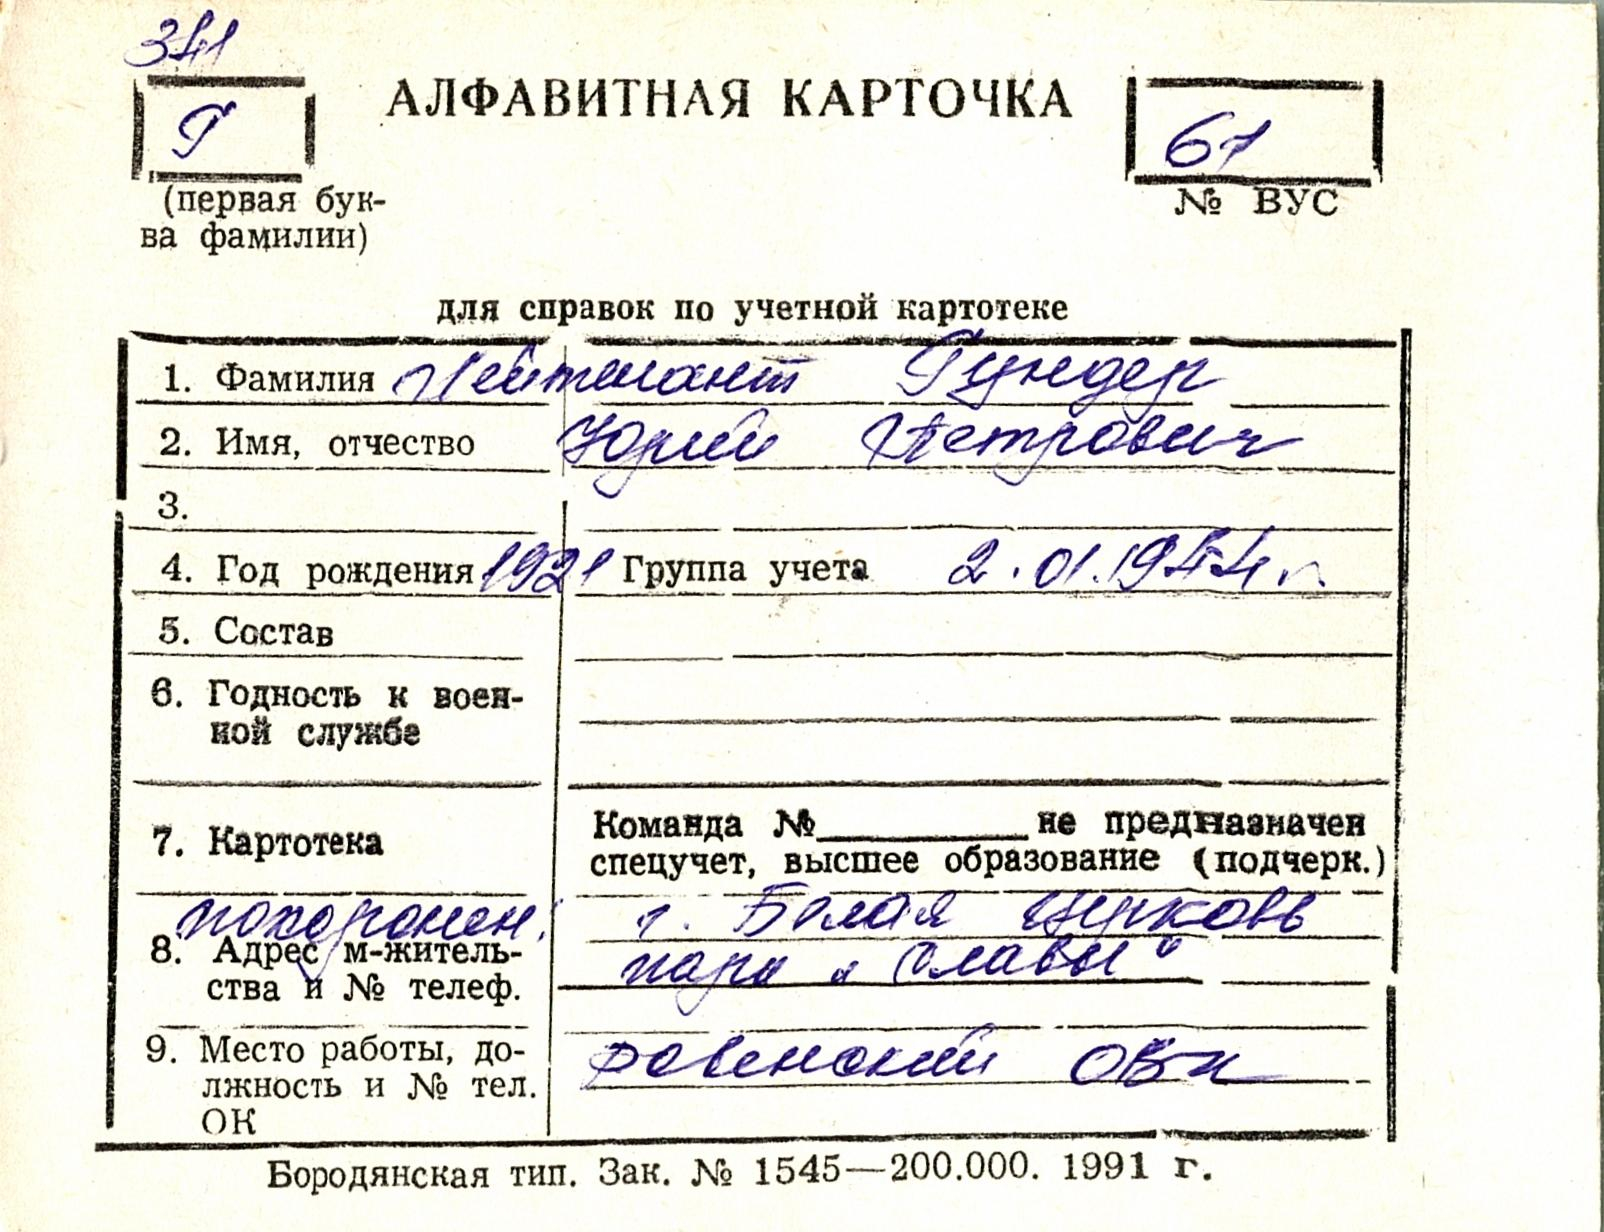 341
Г
АЛФАВИТНАЯ КАРТОЧКА
61
(первая бук-
ва фамилии)
№ ВУС
для справок по учетной картотеке
1. Фамилия Лейтенант Гундер
2. Имя, отчество Юрий Петрович
3.
4. Год рождения 1921 Группа учета 2.01.1944 г.
5. Состав
6. Годность к воен-
ной службе
7. Картотека
Команда №__________не предназначен
спецучет, высшее образование (подчерк.)
похоронен: г. Белая Церковь
8. Адрес м-житель-
ства и № телеф.
парк „Славы"
9. Место работы, до-
лжность и № тел.
ОК
Ровенский ОВК
Бородянская тип. Зак. № 1545—200.000. 1991 г.